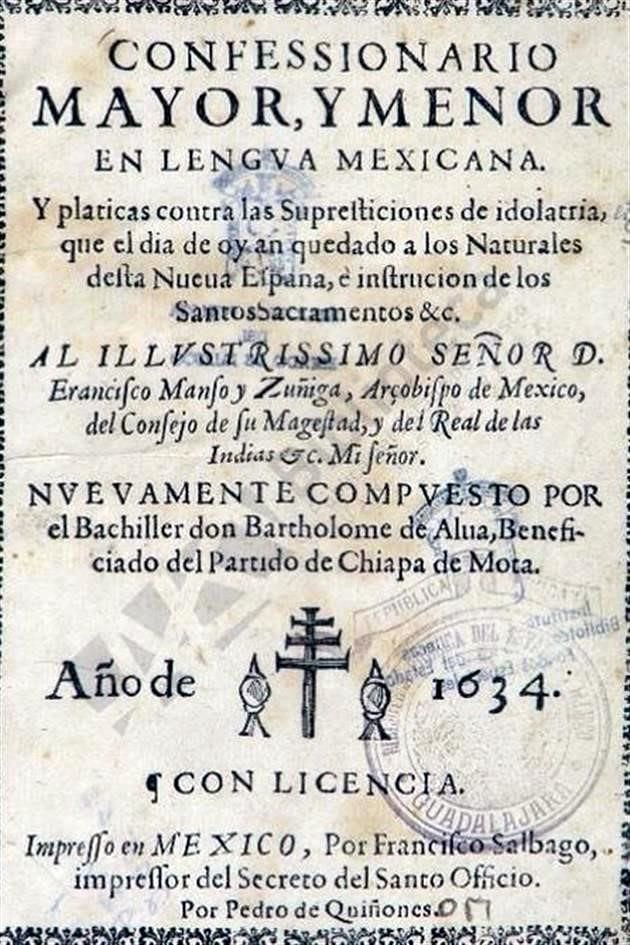 CONFESSIONARIO
MAYOR, Y MENOR
EN LENGVA MEXICANA.
Y platicas contra las Supresticiones de idolatria,
que el dia de oy an quedado a los Naturales
desta Nueua España, è instrucion de los
Santos Sacramentos &c.
AL ILLVSTRISSIMO SEÑOR D.
Francisco Manso y Zuñiga, Arçobispo de Mexico,
del Consejo de su Magestad, y del Real de las
Indias &c. Mi señor.
NVEVAMENTE COMPVESTO POR
el Bachiller don Bartholome de Alua, Benefi-
ciado del Partido de Chiapa de Mota.
Año de 1634.
¶ CON LICENCIA.
Impresso en MEXICO, Por Francisco Salbago,
impressor del Secreto del Santo Officio.
Por Pedro de Quiñones.
GUADALAJARA